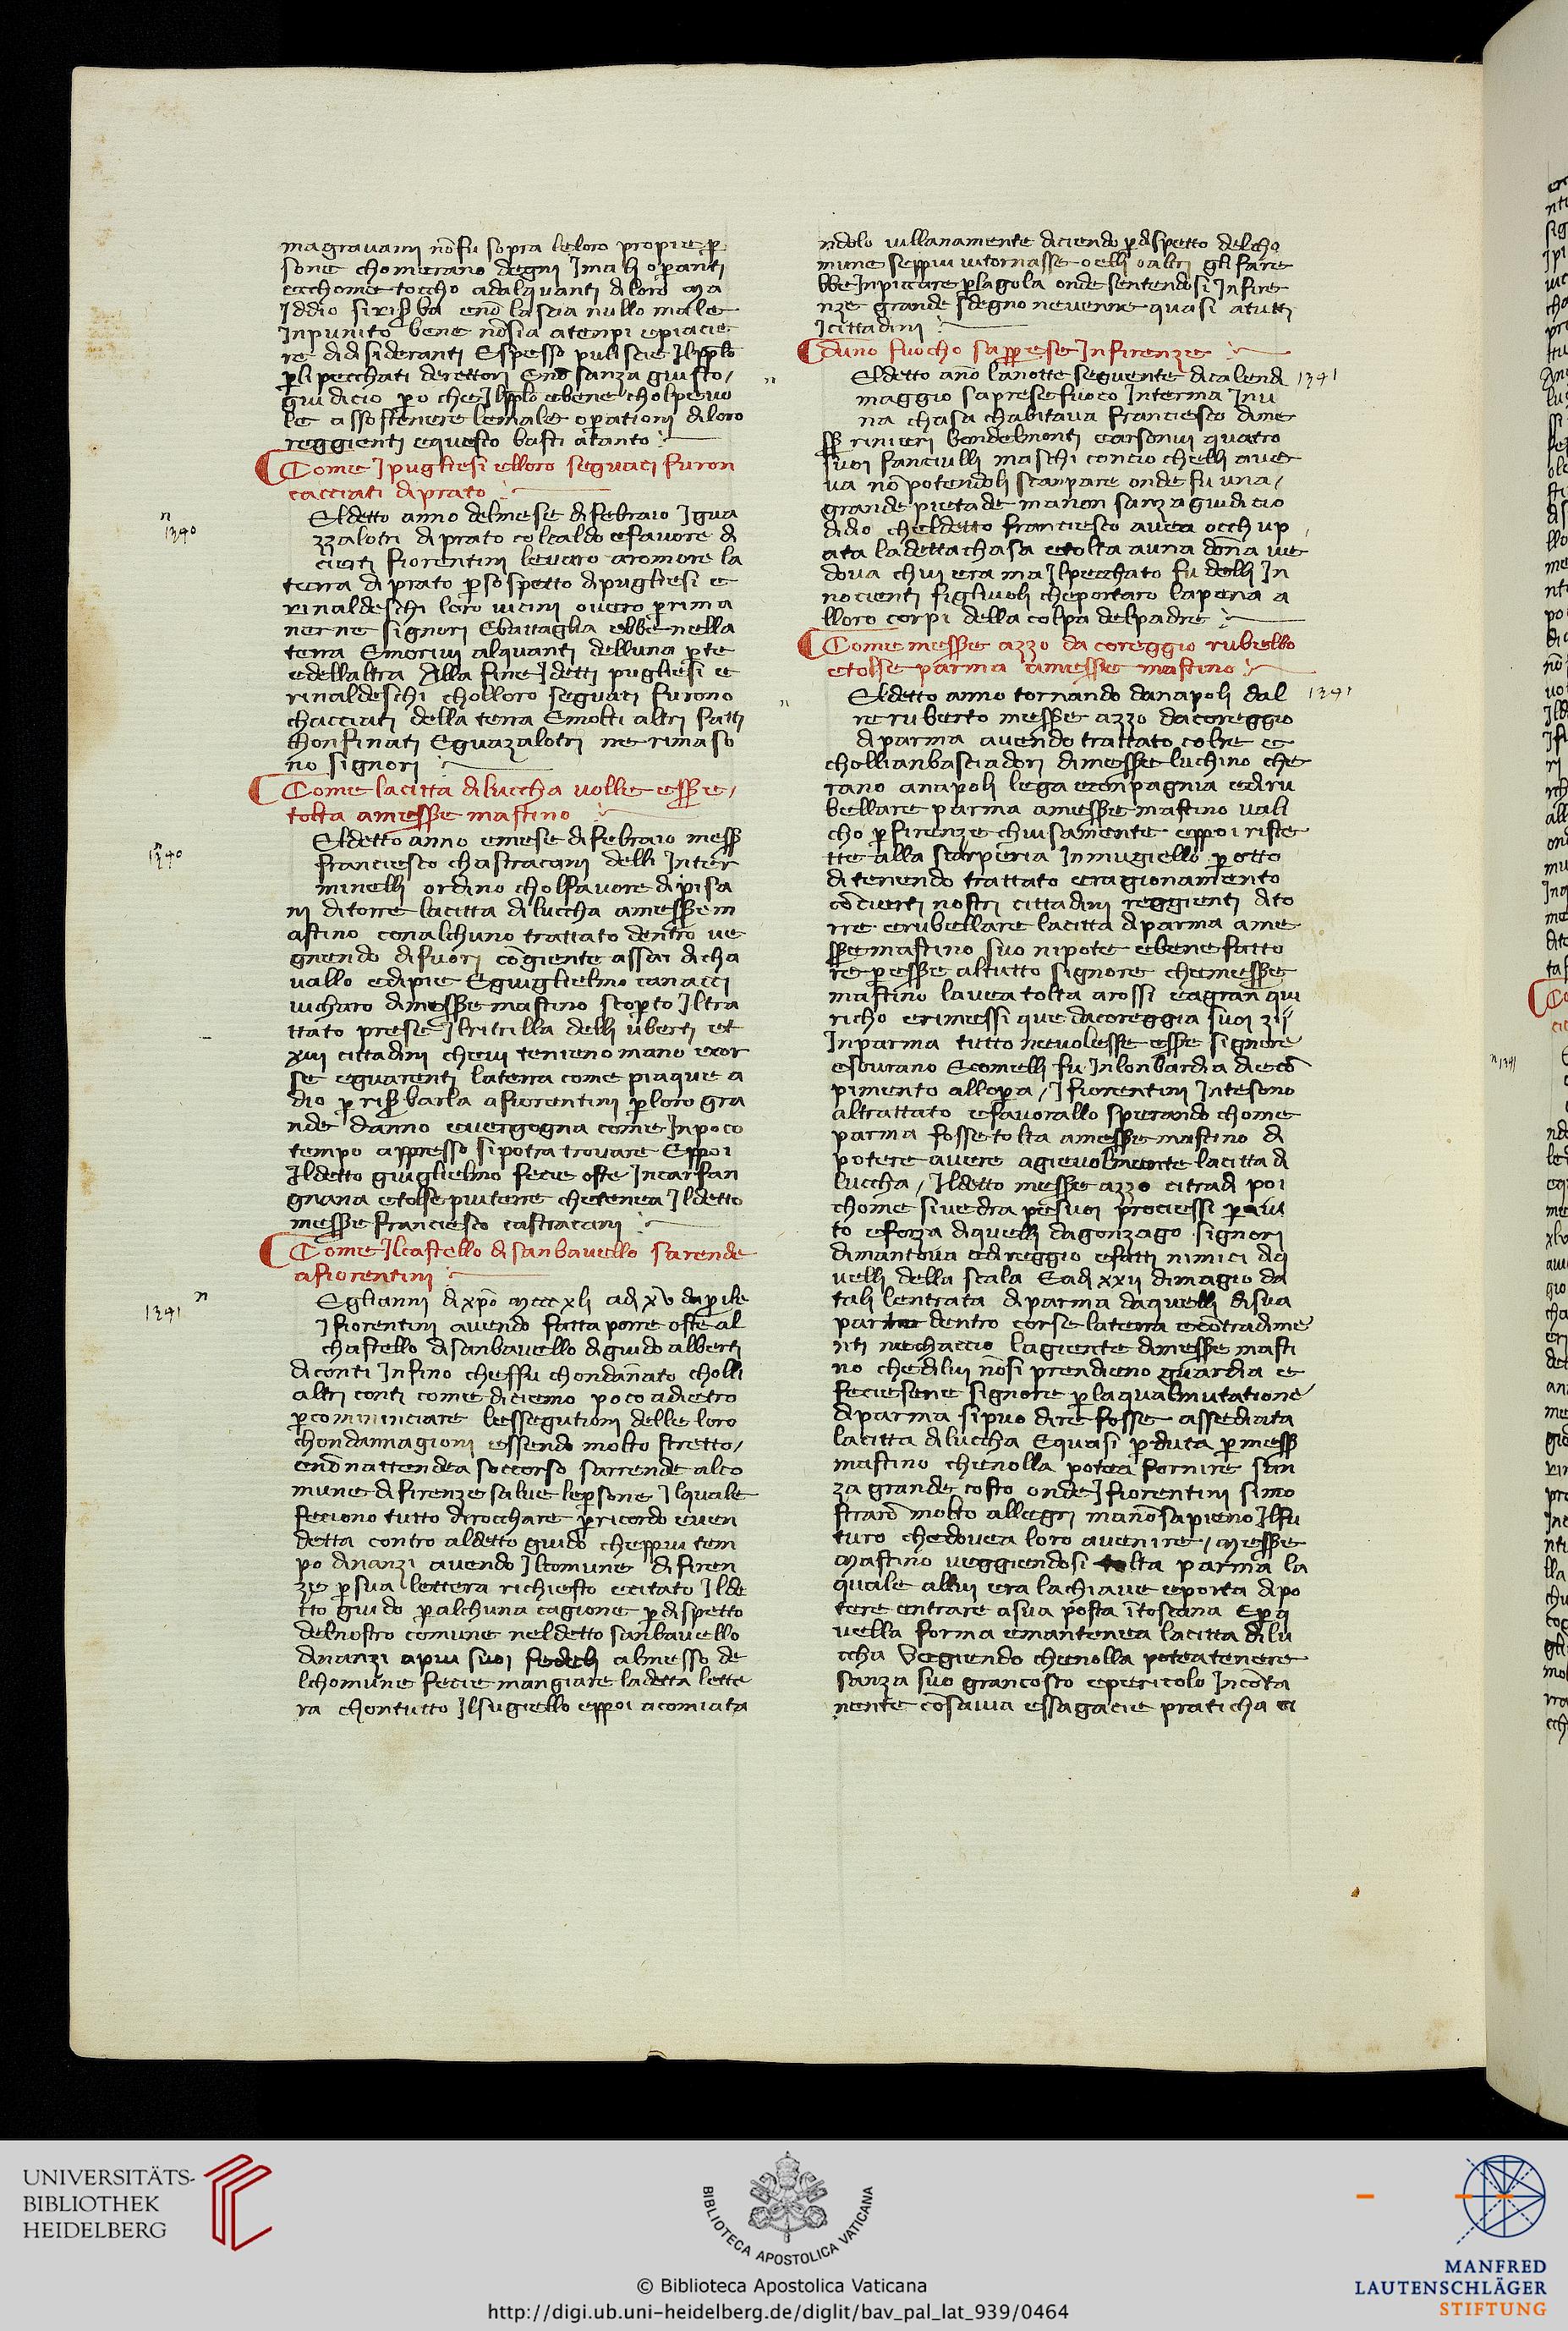 magravami nōfu sopra leloro propie p̱
sone chomerano degni Jmali op̱anti
ecchome toccho adalquanti diloro Ma
Iddio siris̱ba enō lascia nullo male
Inpunito bene nōsia atenpi epiacie
re didisideranti Espesso puliscie Ilpp̱lo
p̱li pecchati derettori Enō sanza giusto/
giudicio p̱o che Ilpp̱lo ebene cholpevo
le assostenere lemale op̱ationi diloro
reggienti equesto basti atanto
Come Jpugliesi elloro seguaci furon
cacciati diprato
n
1340
Eldetto anno delmese difebraio Jgua
zzalotri diprato colcaldo efavore di
cierti fiorentini levaro aromore la
terra di prato p̱sospetto dipugliesi e
rinaldeschi loro vicini overo p̱rima
nerne signori Ebattaglia ebbe nella
terra Emorivi alquanti delluna p̱te
edellaltra Alla fine Jdetti pugliesi e
rinaldeschi cholloro seguaci furono
chacciati della terra Emolti altri fatti
chonfinati Eguazalotri ne rimaso
no signori
Come lacitta diluccha volle ess̱e/
tolta amess̱e mastino
n
1340
Eldetto anno emese difebraio mess̱
franciesco chastracani delli Inter
minelli ordino cholfavore dipisa
ni ditorre lacitta diluccha amess̱e m
astino conalchuno trattato dentro ve
gnendo difuori cōgiente assai dicha
vallo edipie Eguiglielmo canacci
vicharo dimess̱e mastino scop̱to Iltra
ttato prese Ilritrilla delli uberti et
xvii cittadini chevi tenieno mano ecor
se eguarenti laterra come piaque a
dio p̱ ris̱barla afiorentini p̱loro gra
nde danno evergogna come Inpoco
tempo appresso sipotra trovare Eppoi
Ildetto guiglielmo fecie oste Incarfan
gnana etolse piuterre chetenea Ildetto
mess̱e franciesco castracani
Come Ilcastello disanbavello sarende
afiorentini
n
1341
Eglianni dixp̄o Mcccxli adi xv dap̱ile
Jfiorentini avendo fatta porre oste al
chastello disanbavello diguido alberti
diconti Infino cheffu chondannato cholli
altri conti come diciemo poco adietro
p̱comminciare lessegutioni delle loro
chondannagioni essendo molto stretto/
enōnattendea soccorso sarrende alco
mune difirenze salve lep̱sone Ilquale
feciono tutto dirocchare p̱ricordo even
detta contro aldetto guido cheppiu tem
po dinanzi avendo Ilcomune difiren
ze p̱sua lettera richiesto ecitato Ilde
tto guido p̱alchuna cagione p̱dispetto
delnostro comune neldetto sanbavello
dinanzi apiu suoi fedeli almesso de
lchomune fecie mangiare ladetta lette
ra chontutto Ilsugiello eppoi acomiata
ndolo villanamente diciendo p̱dispetto delcho
mune seppiu vitornasse oelli oaltri gli fare
bbe Inpiccare p̱lagola onde sentendosi Infire
nze grande sdegno nevenne quasi atutti
Jcittadini
Duno fuocho sapp̱ese Infirenze
n 1341
Eldetto ano lanotte seguente dicalendi
maggio saprese fuoco Interma Inu
na chasa chabitava franciesco dime
ss̱ rinieri bondelmonti earsonvi quatro
suoi fanciulli maschi concio chelli ave
va nō potendoli scanpare onde fu una/
grande pietade manon sanza giudicio
didio cheldetto franciesco avea occhup
ata ladetta chasa etolta auna dōna ve
dova chui era ma Ilpecchato fu delli In
nocienti figlivoli cheportaro lapena a
lloro corpi della colpa delpadre
Come mess̱e azzo da coreggio rubello
etolse parma amess̱e mastino
n 1341
Eldetto anno tornando danapoli dal
re ruberto mess̱e azzo dacoreggio
diparma avendo trattato colre e
chollianbasciadori dimess̱e luchino che
rano anapoli lega econpagnia ediru
bellare parma amess̱e mastino vali
cho p̱firenze chiusamente eppoi riste
tte alla scarperia Inmugiello p̱ otto
di tenendo trattato eragionamento
cōcierti nostri cittadini reggienti dito
rre erubellare lacitta diparma ame
ss̱e mastino suo nipote ebene fatto
re p̱ess̱e altutto signore chemess̱e
mastino lavea tolta arossi eagran qui
richo erimessi que dacoreggia suoi zii
Inparma tutto nevolesse ess̱e signore
esovrano Ecomelli fu Inlonbardia diecō
pimento allopa/ Jfiorentini Intesono
altrattato efavorallo sperando chome
parma fosse tolta amess̱e mastino di
potere avere agievolmente lacitta di
luccha/ Ildetto mess̱e azzo citradi poi
chome sivedra pesuoi prociessi p̱aiu
to eforza diquelli dagonzago signori
dimantova edireggio efatti nimici diq
uelli della scala Eadi xxii dimagio da
tali lentrata diparma daquelli disua
parte dentro corse laterra econtradime
nti nechaccio lagiente dimess̱e masti
no chedilui nōsi prendieno guardia e
feciesene signore p̱laqualmutatione
diparma sipuo dire fosse assediata
lacitta diluccha Equasi p̱duta p̱mess̱
mastino chenolla potea fornire san
za grande costo onde Jfiorentini simo
straro molto allegri manōsapieno Ilfu
turo chedovea loro avenire/ Mess̱e
Mastino veggiendosi tolta parma la
quale allui era lachiave eporta dipo
tere entrare asua posta ītoscana Ep̱q
uella forma emantenea lacitta dilu
ccha Vegiendo chenolla potea tenere
sanza suo grancosto epericolo Incōta
nente cōsavia essagacie praticha ci
n 1341
UNIVERSITÄTS-
BIBLIOTHEK
HEIDELBERG
BIBLIOTECA APOSTOLICA VATICANA
© Biblioteca Apostolica Vaticana
http://digi.ub.uni-heidelberg.de/diglit/bav_pal_lat_939/0464
MANFRED
LAUTENSCHLÄGER
STIFTUNG